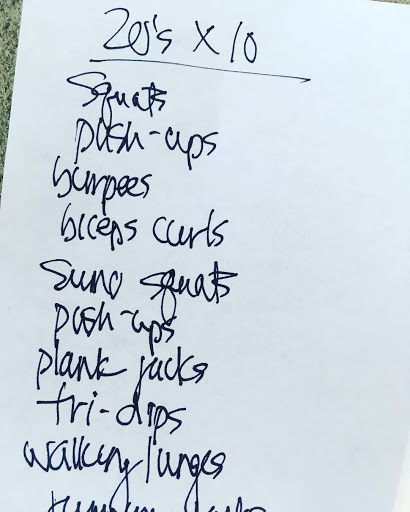 20's x 10
Squats
push-ups
burpees
biceps curls
Sumo squats
push-ups
plank jacks
tri-dips
walking lunges